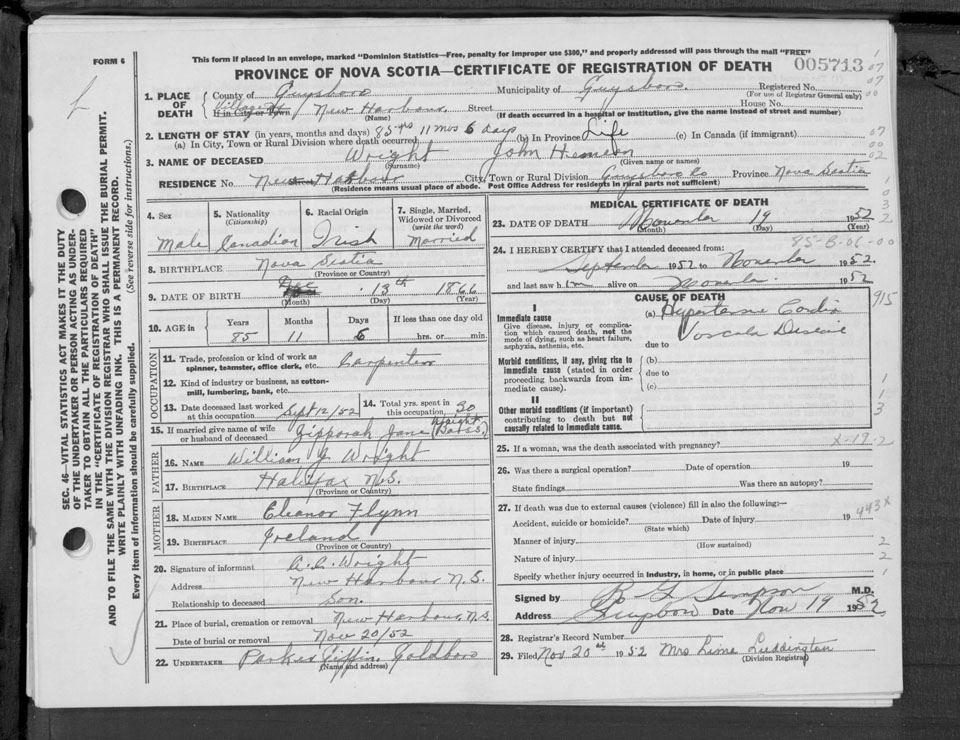 This form if placed in an envelope, marked "Dominion Statistics—Free, penalty for improper use $300," and properly addressed will pass through the mail "FREE"
FORM 6
PROVINCE OF NOVA SCOTIA—CERTIFICATE OF REGISTRATION OF DEATH 005713
1. PLACE OF DEATH
County of Guysboro Municipality of Guysboro Registered No.
(For use of Registrar General only)
Village of If in City or Town New Harbour Street House No.
(Name) (If death occurred in a hospital or institution, give the name instead of street and number)
2. LENGTH OF STAY (in years, months and days) 85 yrs 11 mos 6 days
(a) In City, Town or Rural Division where death occurred (b) In Province Life (c) In Canada (if immigrant)
3. NAME OF DECEASED Wright John
(Surname) (Given name or names)
RESIDENCE No. New Harbour City, Town or Rural Division Guysboro Co Province Nova Scotia
(Residence means usual place of abode. Post Office Address for residents in rural parts not sufficient)
4. Sex Male
5. Nationality (Citizenship) Canadian
6. Racial Origin Irish
7. Single, Married, Widowed or Divorced (write the word) Married
8. BIRTHPLACE Nova Scotia
(Province or Country)
9. DATE OF BIRTH 13th 1866
(Month) (Day) (Year)
10. AGE in Years Months Days If less than one day old
85 11 6 hrs. or min.
OCCUPATION
11. Trade, profession or kind of work as spinner, teamster, office clerk, etc. Carpenter
12. Kind of industry or business, as cotton-mill, lumbering, bank, etc.
13. Date deceased last worked at this occupation Sept 12/52
14. Total yrs. spent in this occupation 30
15. If married give name of wife or husband of deceased Zipporah Jane Wright
FATHER
16. NAME William J Wright
17. BIRTHPLACE Halifax N.S.
(Province or Country)
MOTHER
18. MAIDEN NAME Eleanor Flynn
19. BIRTHPLACE Ireland
(Province or Country)
20. Signature of informant A.C. Wright
Address New Harbour N.S.
Relationship to deceased Son.
21. Place of burial, cremation or removal New Harbour, N.S.
Date of burial or removal Nov 20/52
22. UNDERTAKER Parker Giffin, Goldboro
(Name and address)
MEDICAL CERTIFICATE OF DEATH
23. DATE OF DEATH November 19 1952
(Month) (Day) (Year)
85-B-06-00
24. I HEREBY CERTIFY that I attended deceased from:
September 1952 to November 1952
and last saw him alive on November 1952
CAUSE OF DEATH 915
I
Immediate cause
Give disease, injury or complication which caused death, not the mode of dying, such as heart failure, asphyxia, asthenia, etc.
(a) Hypertensive Cardio
Vascular Disease
due to
Morbid conditions, if any, giving rise to immediate cause (stated in order proceeding backwards from immediate cause).
(b)
due to
(c)
II
Other morbid conditions (if important) contributing to death but not causally related to immediate cause.
25. If a woman, was the death associated with pregnancy? X-19-2
26. Was there a surgical operation? Date of operation 19
State findings Was there an autopsy?
27. If death was due to external causes (violence) fill in also the following:—
443X
Accident, suicide or homicide? Date of injury 19
(State which)
Manner of injury
(How sustained)
Nature of injury
Specify whether injury occurred in industry, in home, or in public place
Signed by Simpson M.D.
Address Date Nov 19 1952
28. Registrar's Record Number
29. Filed Nov 20th 1952 Mrs Luddington
(Division Registrar)
SEC. 46—VITAL STATISTICS ACT MAKES IT THE DUTY
OF THE UNDERTAKER OR PERSON ACTING AS UNDER-
TAKER TO OBTAIN ALL THE PARTICULARS REQUIRED
IN THE "CERTIFICATE OF REGISTRATION OF DEATH"
AND TO FILE THE SAME WITH THE DIVISION REGISTRAR WHO SHALL ISSUE THE BURIAL PERMIT.
WRITE PLAINLY WITH UNFADING INK. THIS IS A PERMANENT RECORD.
Every item of information should be carefully supplied. (See reverse side for instructions.)